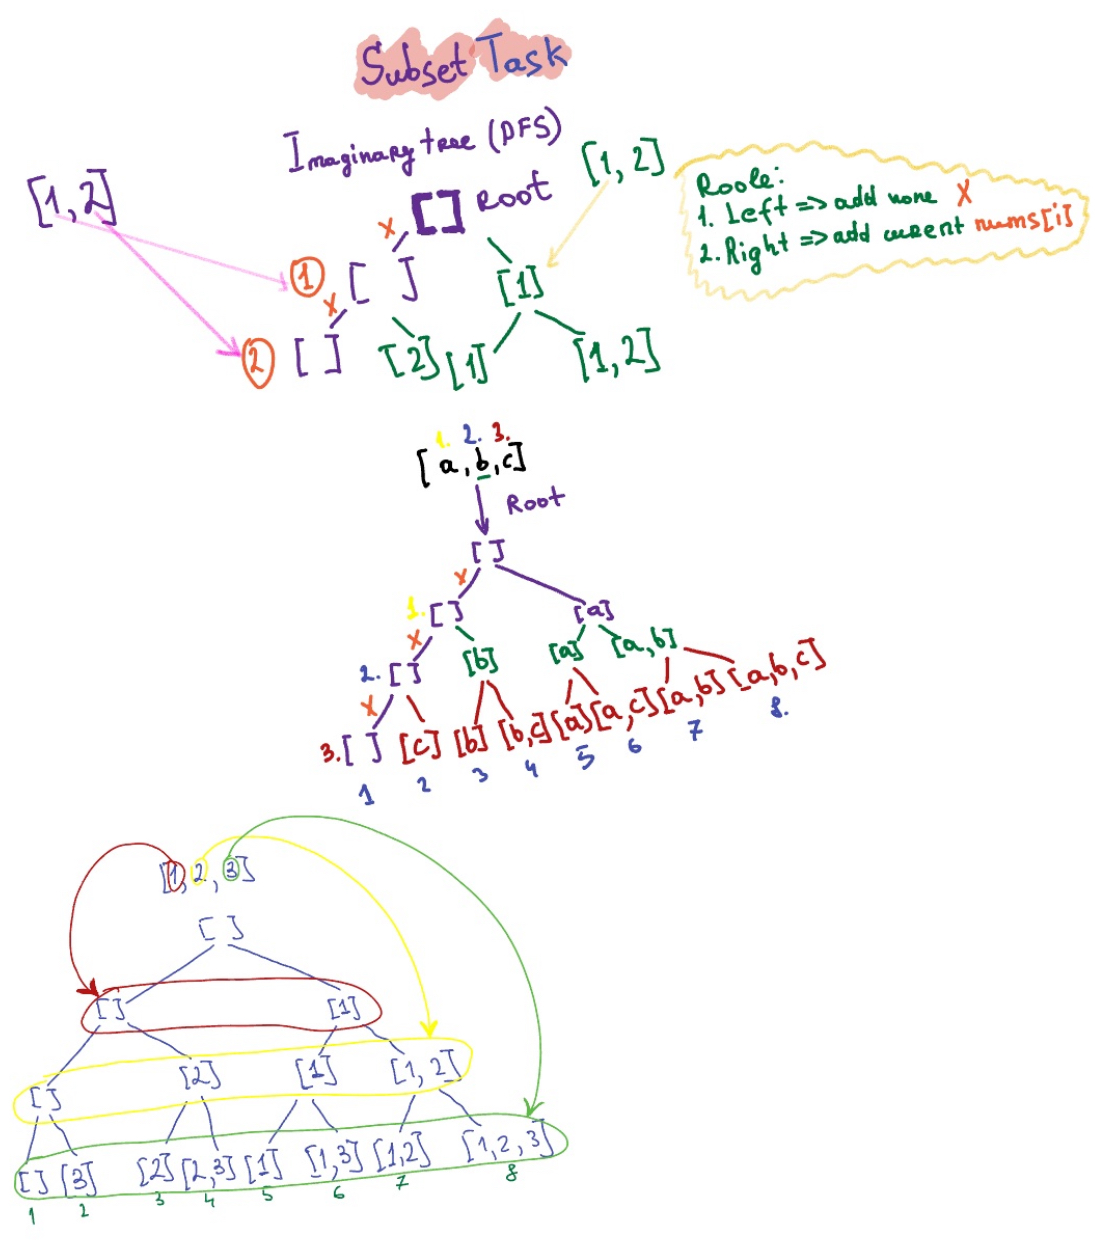 Subset Task
Imaginary tree (DFS)
[1, 2]
[1, 2]
Roole:
1. Left => add none X
2. Right => add current nums[i]
[] Root
X
1 [ ]
[1]
X
2 [ ] [2] [1] [1, 2]
1. 2. 3.
[a, b, c]
Root
[]
X
1. [] [a]
X
2. [] [b] [a] [a, b]
X
3. [ ] [c] [b] [b, c] [a] [a, c] [a, b] [a, b, c]
1 2 3 4 5 6 7 8.
[1, 2, 3]
[ ]
[] [1]
[] [2] [1] [1, 2]
[] [3] [2] [2, 3] [1] [1, 3] [1, 2] [1, 2, 3]
1 2 3 4 5 6 7 8